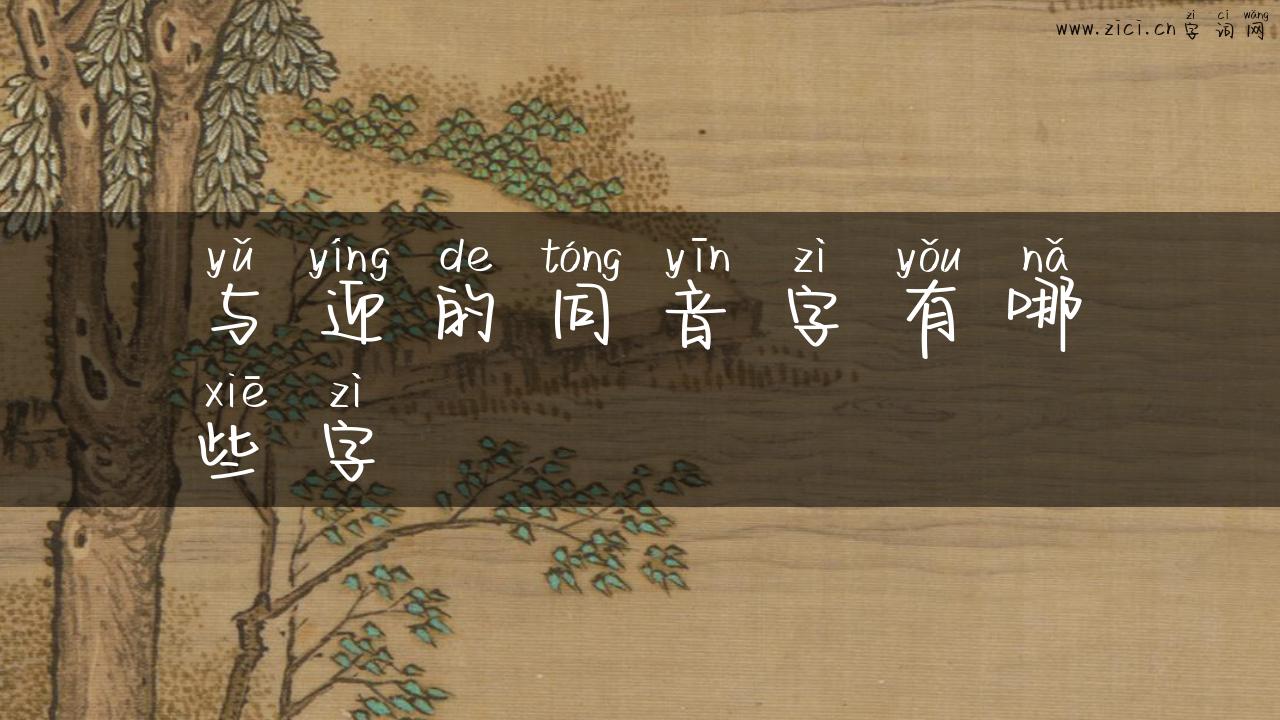 zì cí wǎng
www.zici.cn 字词网
yǔ yíng de tóng yīn zì yǒu nǎ
与迎的同音字有哪
xiē zì
些字